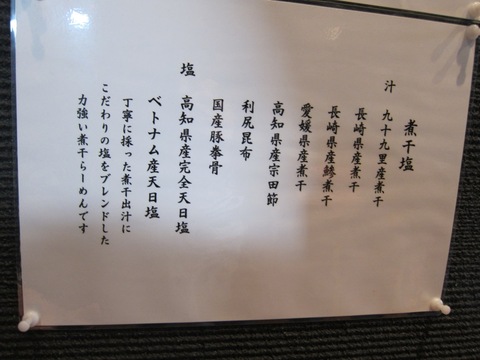 煮干塩
汁 九十九里産煮干
長崎県産煮干
長崎県産鯵煮干
愛媛県産煮干
高知県産宗田節
利尻昆布
国産豚拳骨
塩 高知県産完全天日塩
ベトナム産天日塩
丁寧に採った煮干出汁に
こだわりの塩をブレンドした
力強い煮干らーめんです